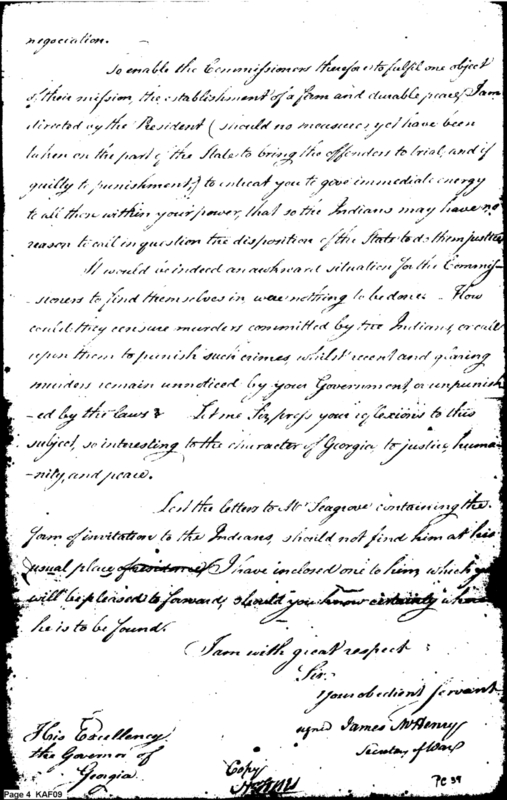 negociation.
To enable the Commissioners therefore to fulfil one object
of their mission, the establishment of a firm and durable peace, I am
directed by the President (should no measures yet have been
taken on the part of the State to bring the offenders to trial, and if
guilty to punishment,) to intreat you to give immediate energy
to all those within your power, that so the Indians may have no
reason to call in question the disposition of the State to do them justice
It would be indeed an awkward situation for the Commis-
-sioners to find themselves in, were nothing to be done. How
could they censure murders committed by the Indians, or call
upon them to punish such crimes, whilst recent and glaring
murders remain unnoticed by your Government, or unpunish
-ed by the laws? Let me Sir, press your reflexions to this
subject, so interesting to the character of Georgia, to justice, huma-
-nity, and peace.
Lest the letters to Mr Seagrove containing the
form of invitation to the Indians, should not find him at his
usual place of residence, I have inclosed one to him, which you
will be pleased to forward, should you know certainly where
he is to be found.
I am with great respect
Sir.
Your obedient servant
signed James McHenry
Secretary of War
His Excellency
the Governor of
Georgia.
Copy
PC 39
Page 4 KAF09